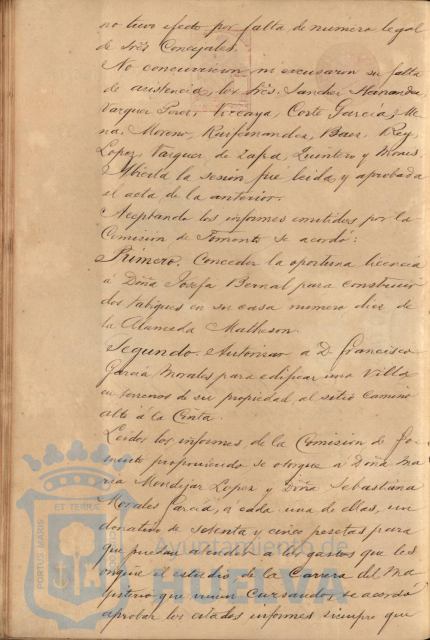 no tuvo efecto por falta de numero legal
de Srês Concejales.
No concurrieron ni excusaron su falta
de asistencia, los Srês. Sanchez Hernandez
Vazquez Perez, Vizcaya, Corte Garcia, Me
na, Moreno, Ruifernandez, Baez, Rey,
Lopez, Vazquez de Zafra, Quintero y
Abierta la sesión, fué leida y aprobada
el acta de la anterior.
Aceptando los informes emitidos por la
Comisión de Fomento se acordó:
Primero. Conceder la oportuna licencia
á Doña Josefa Bernal para construir
dos tabiques en su casa numero diez de
la Alameda Matheson.
Segundo. Autorizar a D. Francisco
Garcia Morales para edificar una Villa
en terrenos de su propiedad al sitio camino
alto á la Cinta.
Leidos los informes de la Comisión de Fo
mento proponiendo se otorgue á Doña Ma
ria Mondejar Lopez y Doña Sebastiana
Morales Garcia, a cada una de ellas, un
donativo de setenta y cinco pesetas para
que puedan atender a los gastos que les
origine el estudio de la Carrera del Ma
gisterio que vienen cursando, se acordó
aprobar los citados informes siempre que
PORTUS MARIS ET TERRAE
Ayuntamiento de
HUELVA